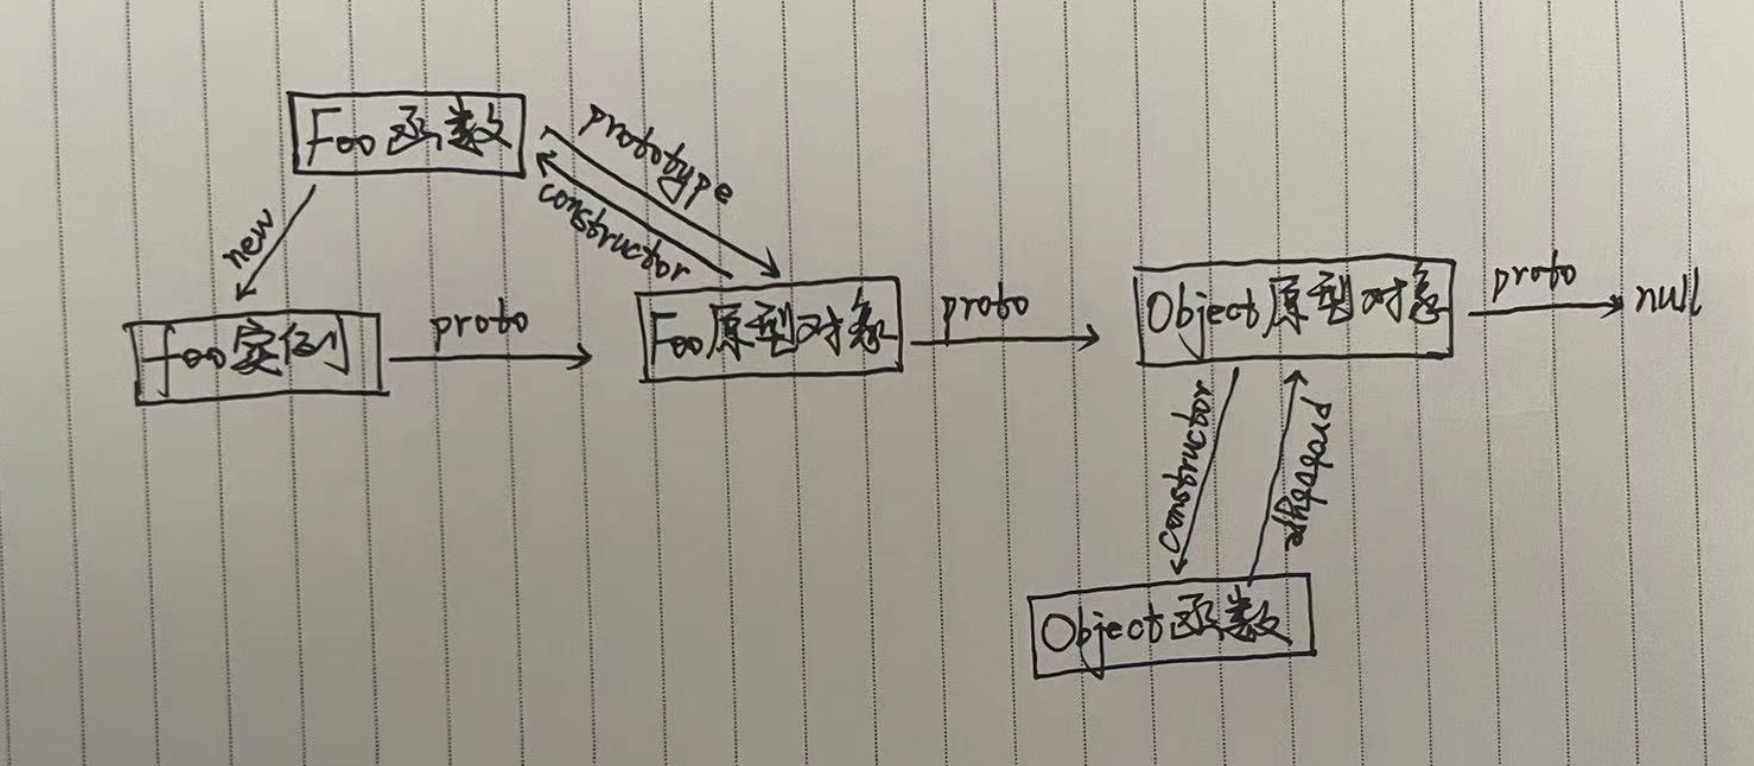 Foo函数
prototype
constructor
new
foo实例
proto
Foo原型对象
proto
Object原型对象
proto
null
constructor
prototype
Object函数